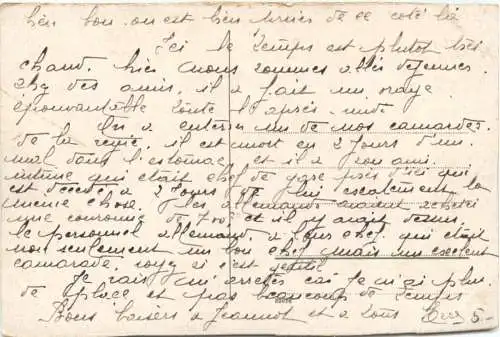 bien bon. on est bien servis de ce coté là
Ici le temps est plutot très
chaud. hier nous sommes allés dejeuner
chez des amis, il a fait un orage
épouvantable toute l'après-midi
On a enterré un de nos camarades
de la reçie, il est mort en 2 jours d'un
mal dans l'estomac et il a son ami
intime qui était chef de gare près d'ici qui
est decedé a 2 jours de lui egalement la
meme chose. Les allemands avaient acheté
une couronne de 700f et il y avait dessus.
le personnel allemand a leur chef qui était
non seulement un bon chef mais un excellent
camarade, voyez si c'est gentil
Je vais m'arreter car je n'ai plus
de place et pas beaucoup de temps
Bons baisers a Jeannot et a tous
5.-